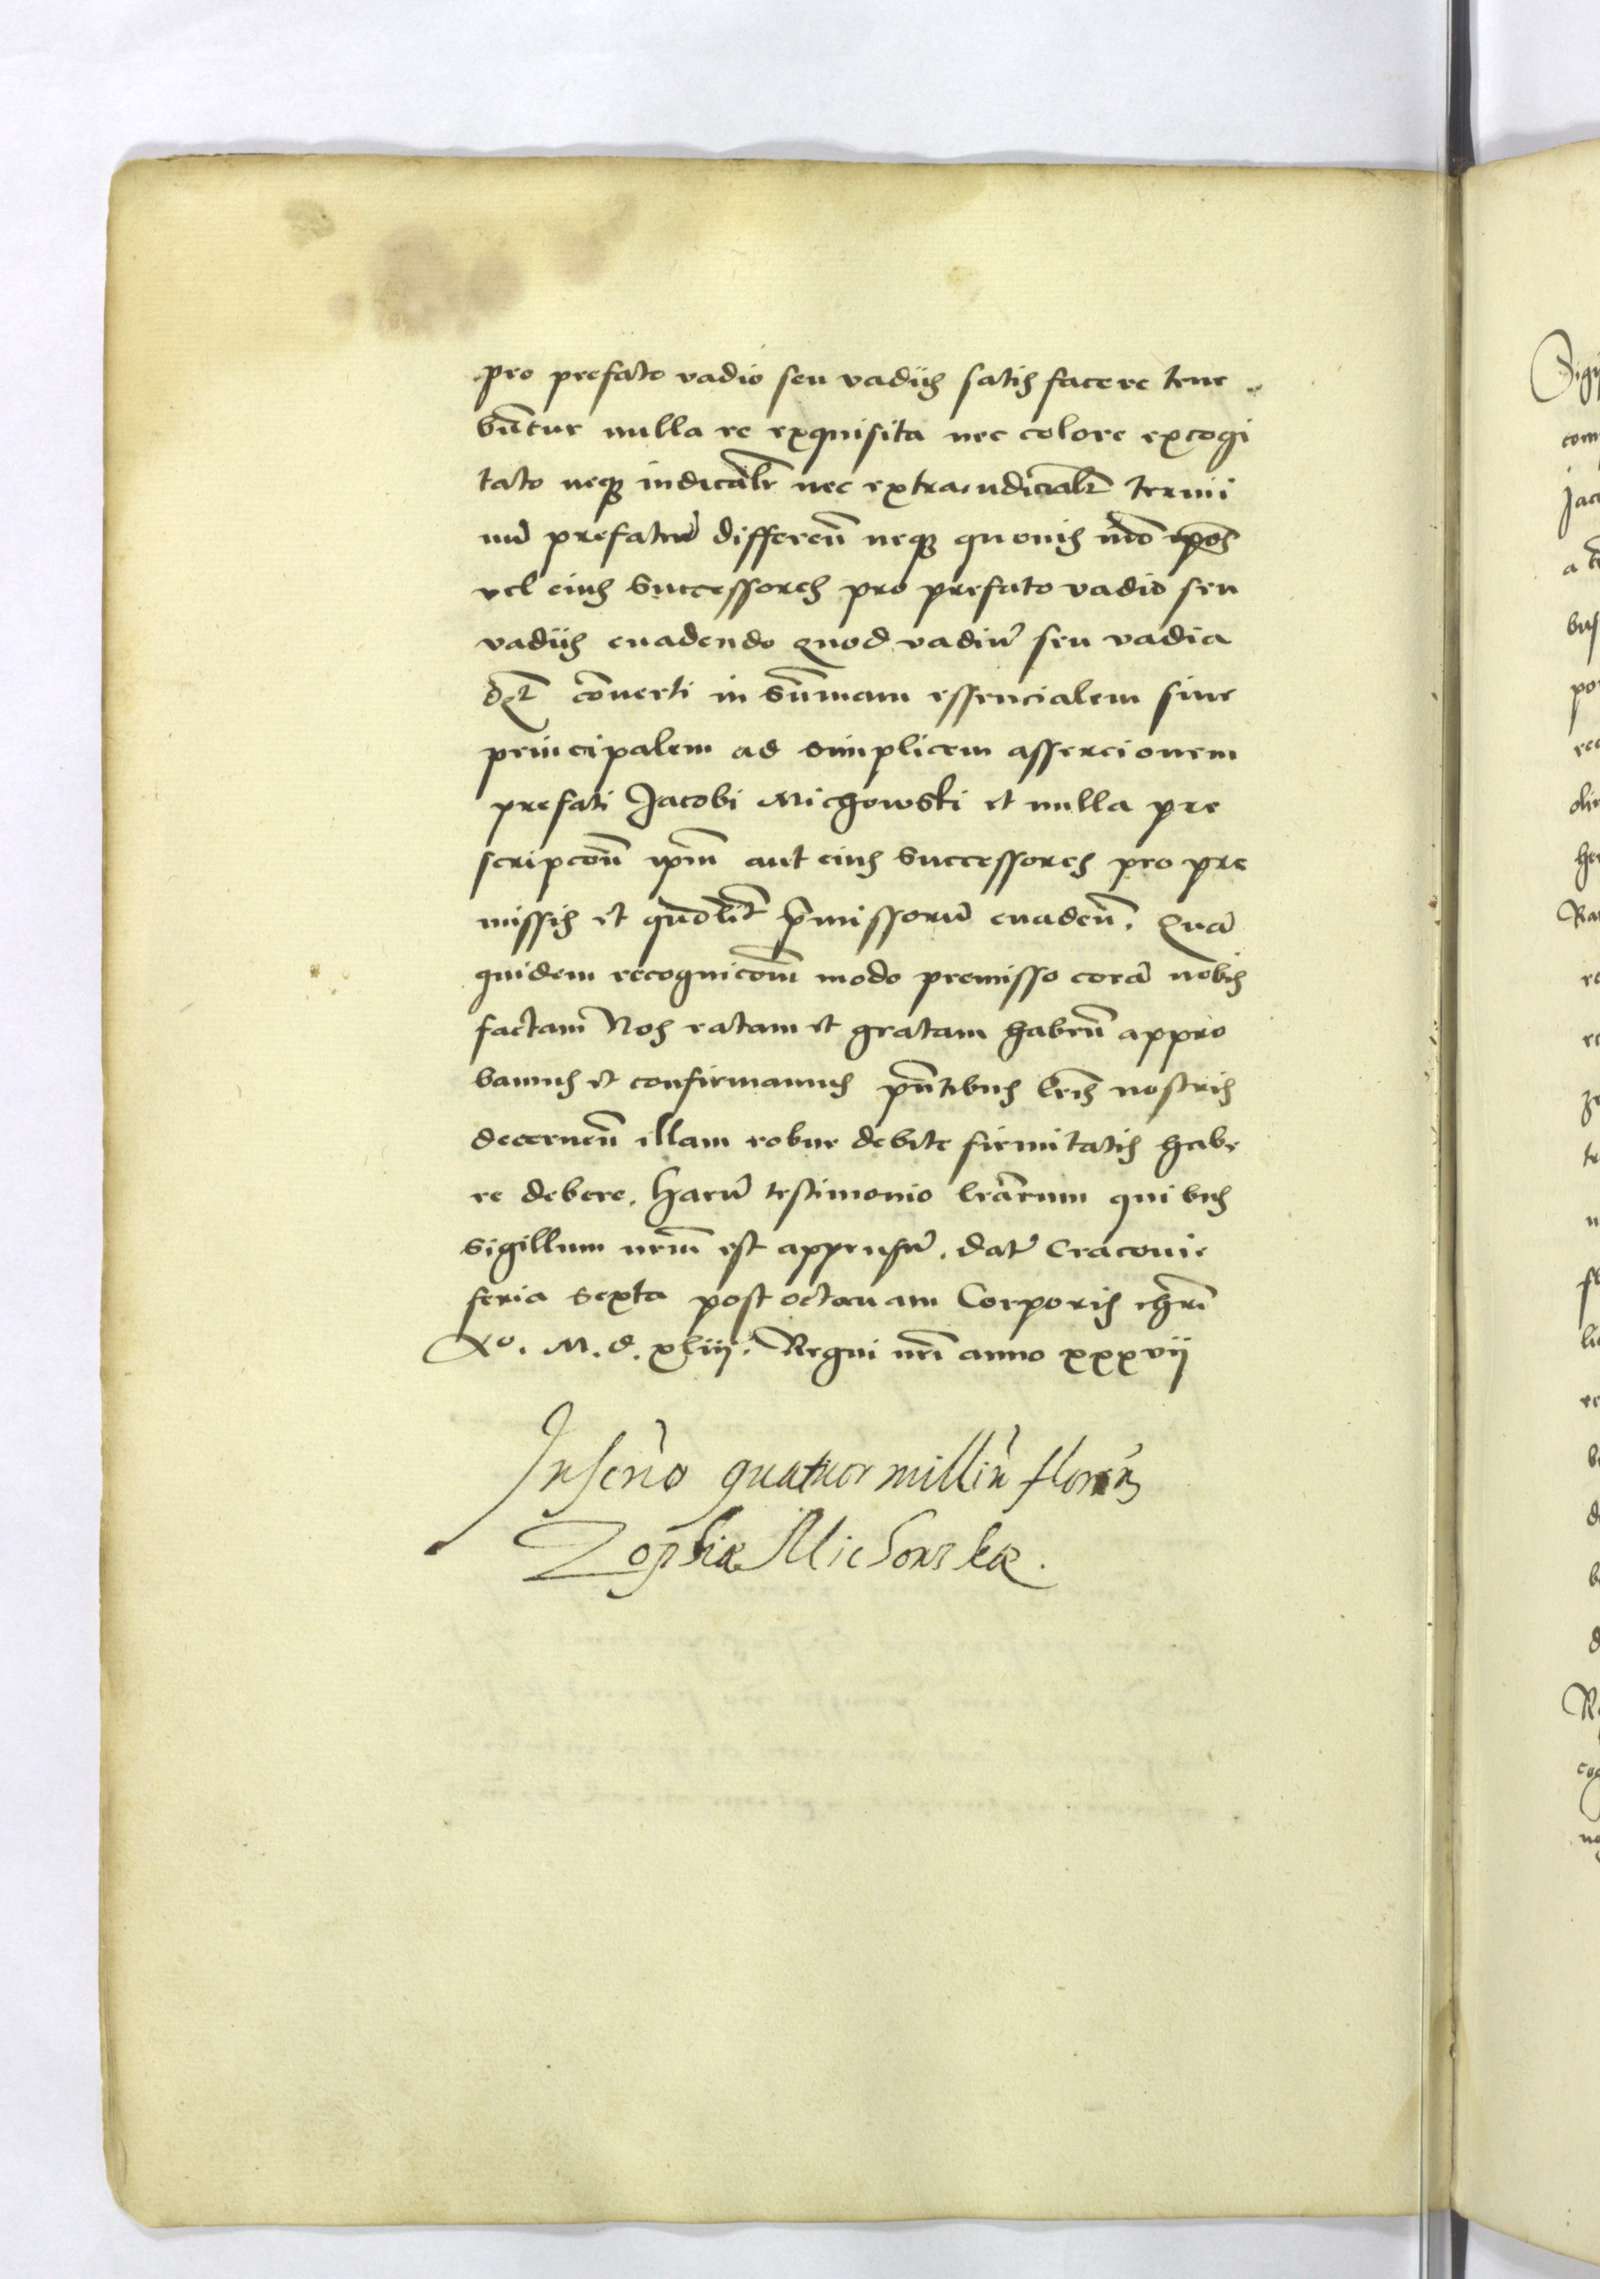 pro prefato vadio seu vadiis satis facere tene
būtur nulla re exquisita nec colore excogi
tato neq; iudicialr nec extraiudicialr termi
nū prefatū differen̄ neq; quouis mō ip̄os
vel eius successores pro prefato vadio seu
vadiis euadendo quod vadiū seu vadia
cōuerti in sūmam essencialem siue
principalem ad simplicem assercionem
prefati Jacobi Michowski et nulla pre
scripcōn ip̄m aut eius successores pro pre
missis et quolt p̄missorū euaden̄. Quā
quidem recognicōm modo premisso corā nobis
factam Nos ratam et gratam haben̄ appro
bamus et confirmamus p̄ntibus lr̄is nostris
decernen̄ illam robur debite firmitatis habe
re debere. Harū testimonio lrārum quibus
sigillum nrm̄ est appensū. Dat Cracouie
feria sexta post octauam Corporis chr̄i
Aº. M. d. xliij. Regni nr̄i anno xxxvij
Inscrīo quatuor millīu floren̄
Zophiæ Michowskæ.
Sigi
com
Jac